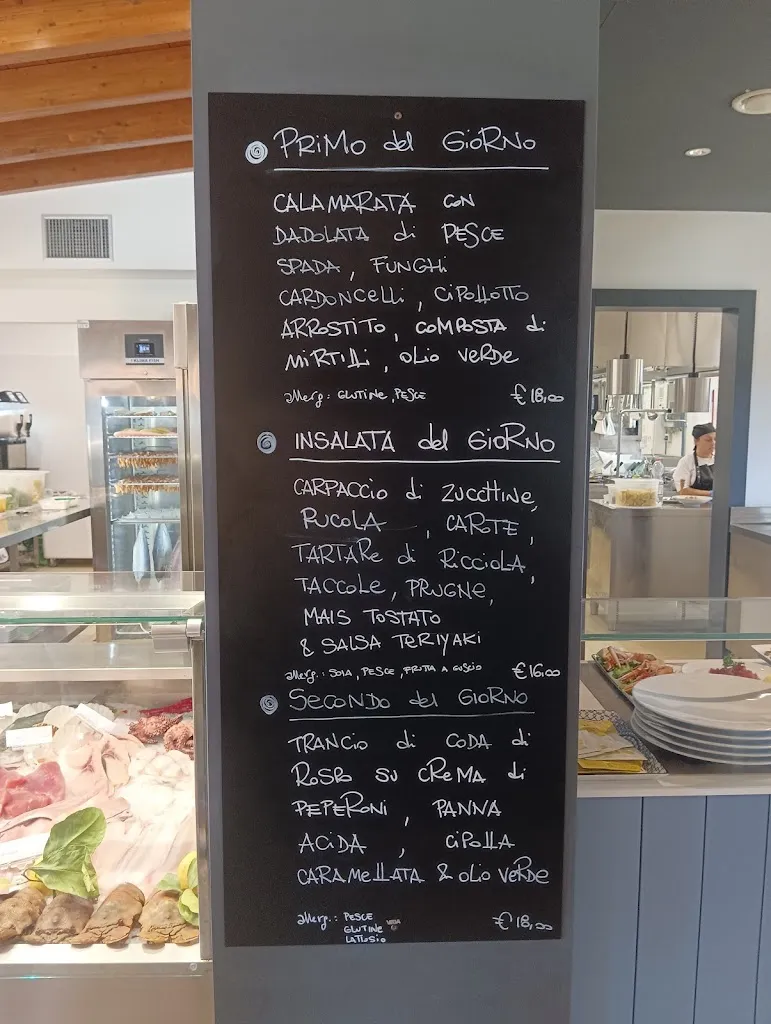 PRiMO del GiORNO
CALAMARATA CON
DADOLATA di PESCE
SPADA, FUNGHi
CARDONCELLi, CiPOLLOTTO
ARROSTITO, COMPOSTA di
MiRTiLLi, OLiO VERDE
allerg: GLUTiNE, PESCE €18,00
INSALATA del GiORNO
CARPACCiO di ZUCCHiNE,
RUCOLA, CAROTE,
TARTARE di RiCCiOLA,
TACCOLE, PRUGNE,
MAiS TOSTATO
& SALSA TERiYAKi
allerg.: SOiA, PESCE, FRUTTA A GUSCiO €16,00
SECONDO del GiORNO
TRANCiO di CODA di
ROSPO SU CREMA di
PEPERONi, PANNA
ACiDA, CiPOLLA
CARAMELLATA & OLiO VERDE
allerg.: PESCE
GLUTiNE
LATTOSiO
€18,00